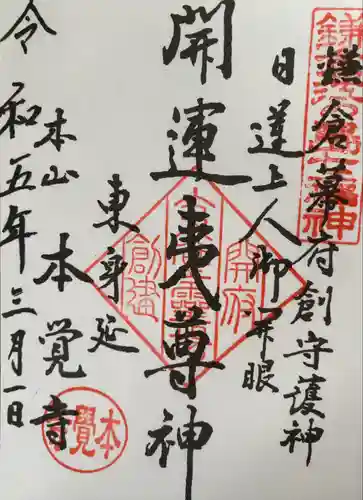 鎌倉幕府創守護神
日蓮上人御開眼
開運夷尊神
東身延
本山 本覺寺
令和五年三月一日
開府
創建
本覺寺